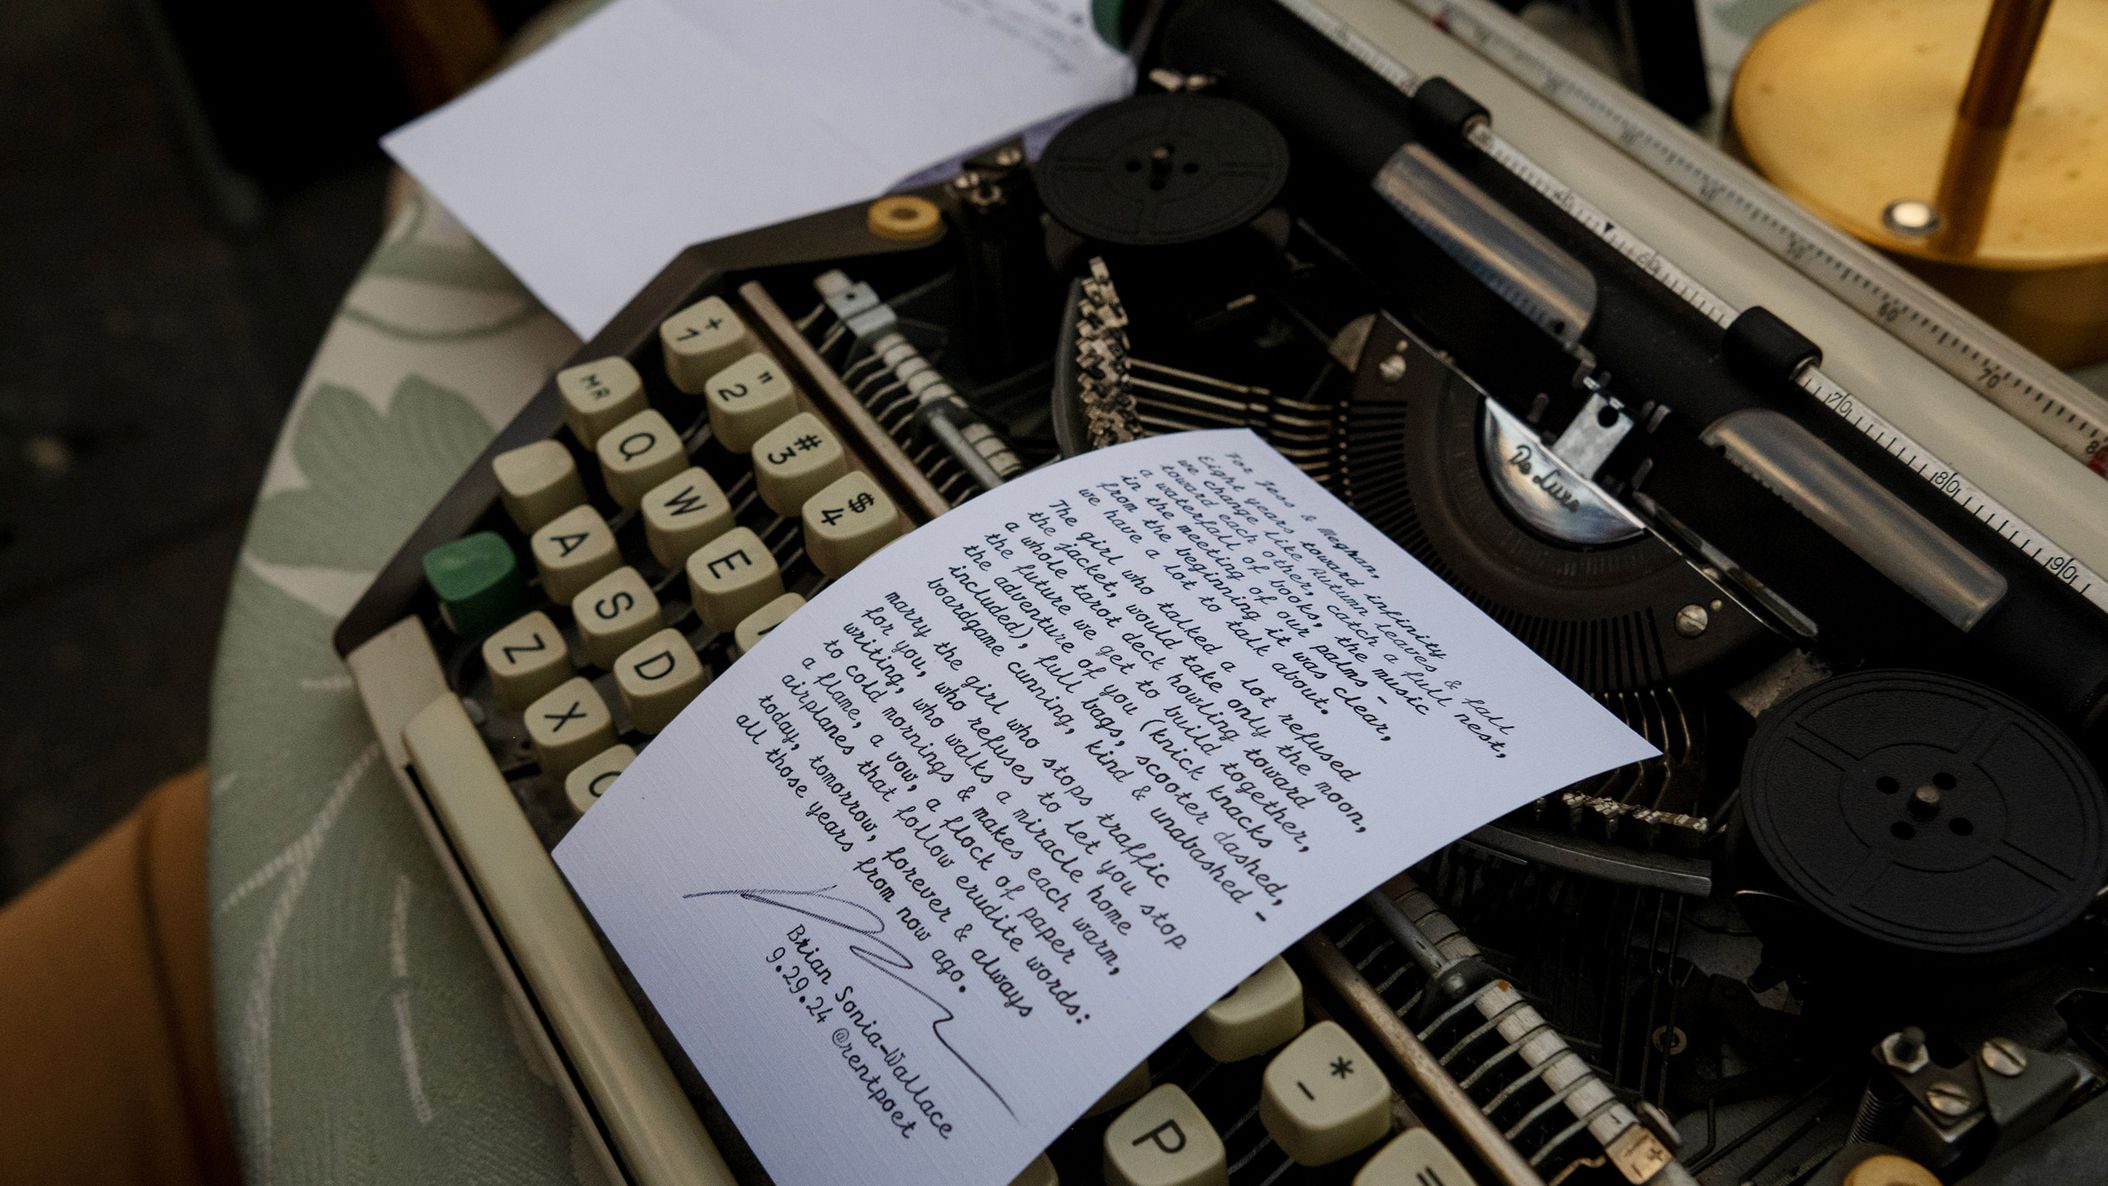 For Jess & Meghan,
Eight years toward infinity
we change like Autumn leaves & fall
toward each other, catch a full nest,
a waterfall of books, the music
in the meeting of our palms -
from the beginning it was clear,
we have a lot to talk about.
The girl who talked a lot refused
the jacket, would take only the moon,
a whole tarot deck howling toward
the future we get to build together,
the adventure of you (knick knacks
included), full bags, scooter dashed,
boardgame cunning, kind & unabashed -
marry the girl who stops traffic
for you, who refuses to let you stop
writing, who walks a miracle home
to cold mornings & makes each warm,
a flame, a vow, a flock of paper
airplanes that follow erudite words:
today, tomorrow, forever & always
all those years from now ago.
Brian Sonia-Wallace
9.29.24 @rentpoet
De Luxe
+ 1 " 2 # 3 $ 4
MR Q W E
A S D
Z X C
* -
P =
60 70 80
170 180 190